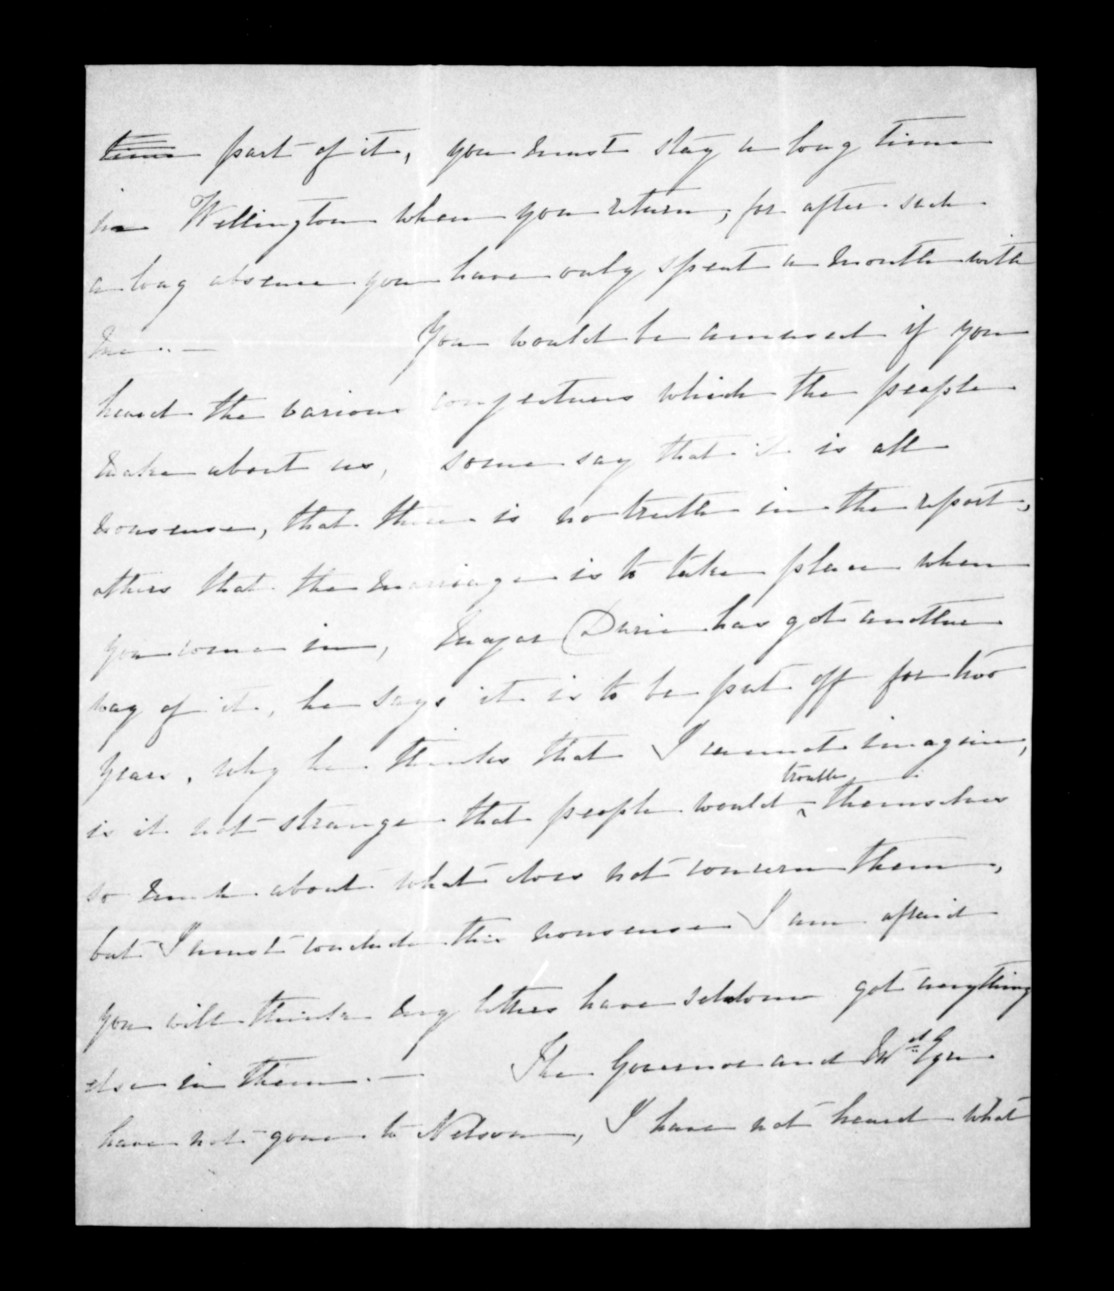 time part of it, you must stay a long time
in Wellington when you return, for after such
a long absence you have only spent a month with
me. — You would be amused if you
heard the various conjectures which the people
make about us, some say that it is all
nonsense, that there is no truth in the report,
others that the marriage is to take place when
you come in, Major Durie has got another
way of it, he says it is to be put off for two
years, why he thinks that I cannot imagine,
is it not strange that people would trouble themselves
so much about what does not concern them,
but I must conclude this nonsense I am afraid
you will think my letters have seldom got anything
else in them. — The Governor and Mrs Eyre
have not gone to Nelson, I have not heard what